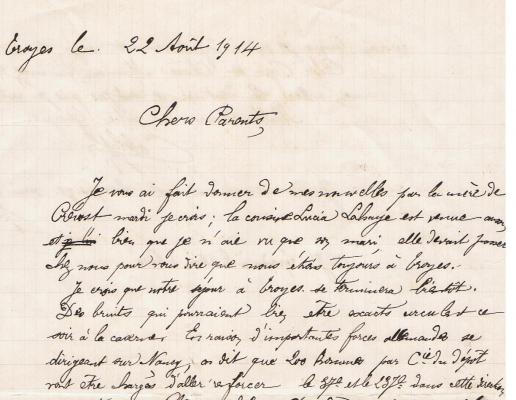 Troyes le. 22 Août 1914
Chers Parents,
Je vous ai fait donner de mes nouvelles par la mère de
mardi je crois ; la cousine Lucie est venue
et bien que je n'aie vu que son mari, elle devait passer
chez nous pour vous dire que nous étions toujours à Troyes.
Je crois que notre séjour à Troyes se terminera bientôt.
Des bruits qui pourraient bien être exacts circulent ce
soir à la caserne. En raison d'importantes forces allemandes se
dirigeant sur Nancy, on dit que 200 hommes par Cie du dépôt
vont être chargés d'aller renforcer le 37e et le 137e dans cette